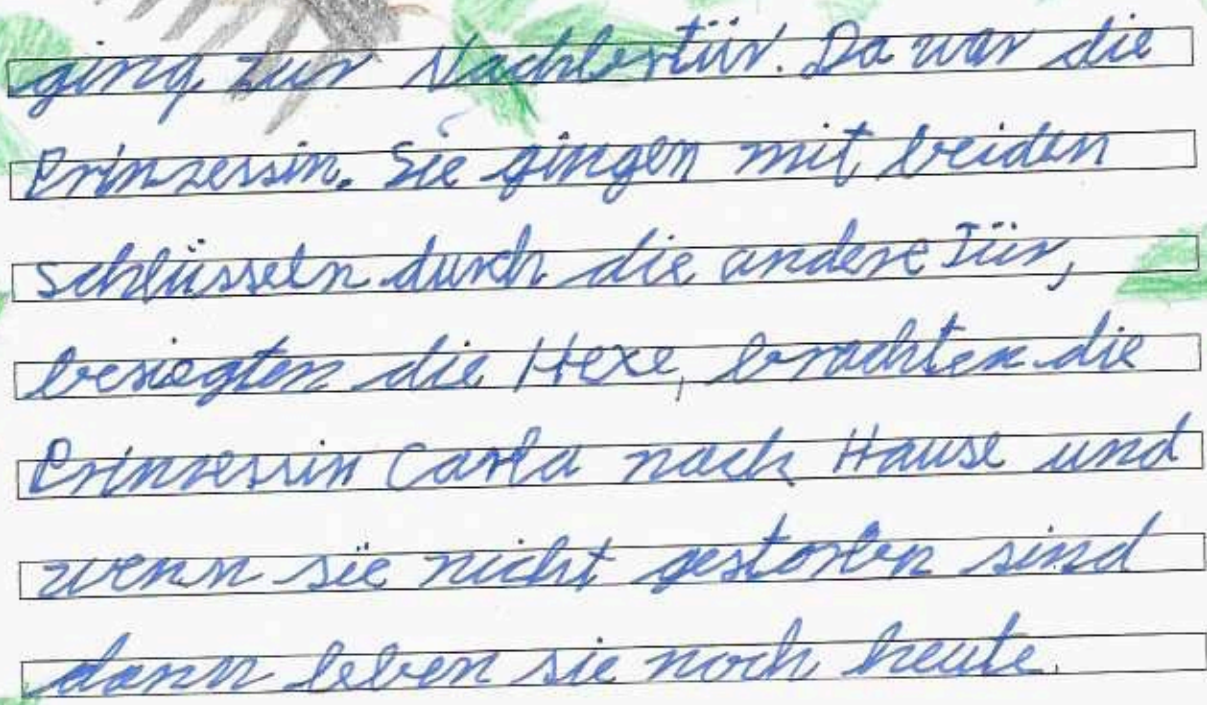 ging zur Nachbertür. Da war die
Prinzessin. Sie gingen mit beiden
schlüsseln durch die andere Tür,
besiegten die Hexe, brachten die
Prinzessin Carla nach Hause und
wenn sie nicht gestorben sind
dann leben sie noch heute.